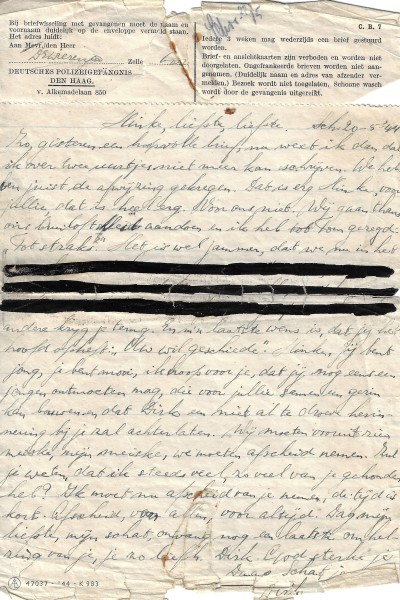 Bij briefwisseling met gevangenen moet de naam en
voornaam duidelijk op de enveloppe vermeld staan.
Het adres luidt:
Aan Mevr./den Heer
Zelle
DEUTSCHES POLIZEIGEFÄNGNIS
DEN HAAG.
v. Alkemadelaan 850
C. B. 7
Iedere 3 weken mag wederzijds een brief gestuurd
worden.
Brief- en ansichtkaarten zijn verboden en worden niet
doorgelaten. Ongefrankeerde brieven worden niet aan-
genomen. (Duidelijk naam en adres van afzender ver-
melden.) Bezoek wordt niet toegelaten. Schoone wasch
wordt door de gevangenis uitgereikt.
liefste, liefste Sch. 20-5-'44
gisteren een hoopvolle brief, nu weet ik dan dat
ik over twee uurtjes niet meer kan schrijven. We heb
ben juist de afwijzing gekregen. Dat is erg voor
jullie dat is heel erg. Voor ons niet. Wij gaan thans
ons bruiloftskleed aandoen en ik heb tot hem gezegd:
"Tot straks". Het is wel jammer, dat we nu in het
andere krijg je terug. En m'n laatste wens is, dat jij het
hoofd opheft: "Uw wil geschiede". jij bent
jong, je bent mooi, ik hoop voor je, dat jij nog eens een
jongen ontmoeten mag, die voor jullie samen een gezin
kan bouwen en dat Dirk een niet al te droeve herin
nering bij je zal achterlaten. Wij moeten vooruit zien
meiske, mijn meiske, we moeten afscheid nemen. Zul
je weten, dat ik steeds veel, zo veel van je gehouden
heb? Ik moet nu afscheid van je nemen, de tijd is
kort. Afscheid, van allen, voor altijd. Dag mijn
liefste, mijn schat, ontvang nog een laatste omhel-
zing van je, je zo liefh. Dirk. God sterke je
Dag Schat
Dirk
A 47037 - '44 - K 983